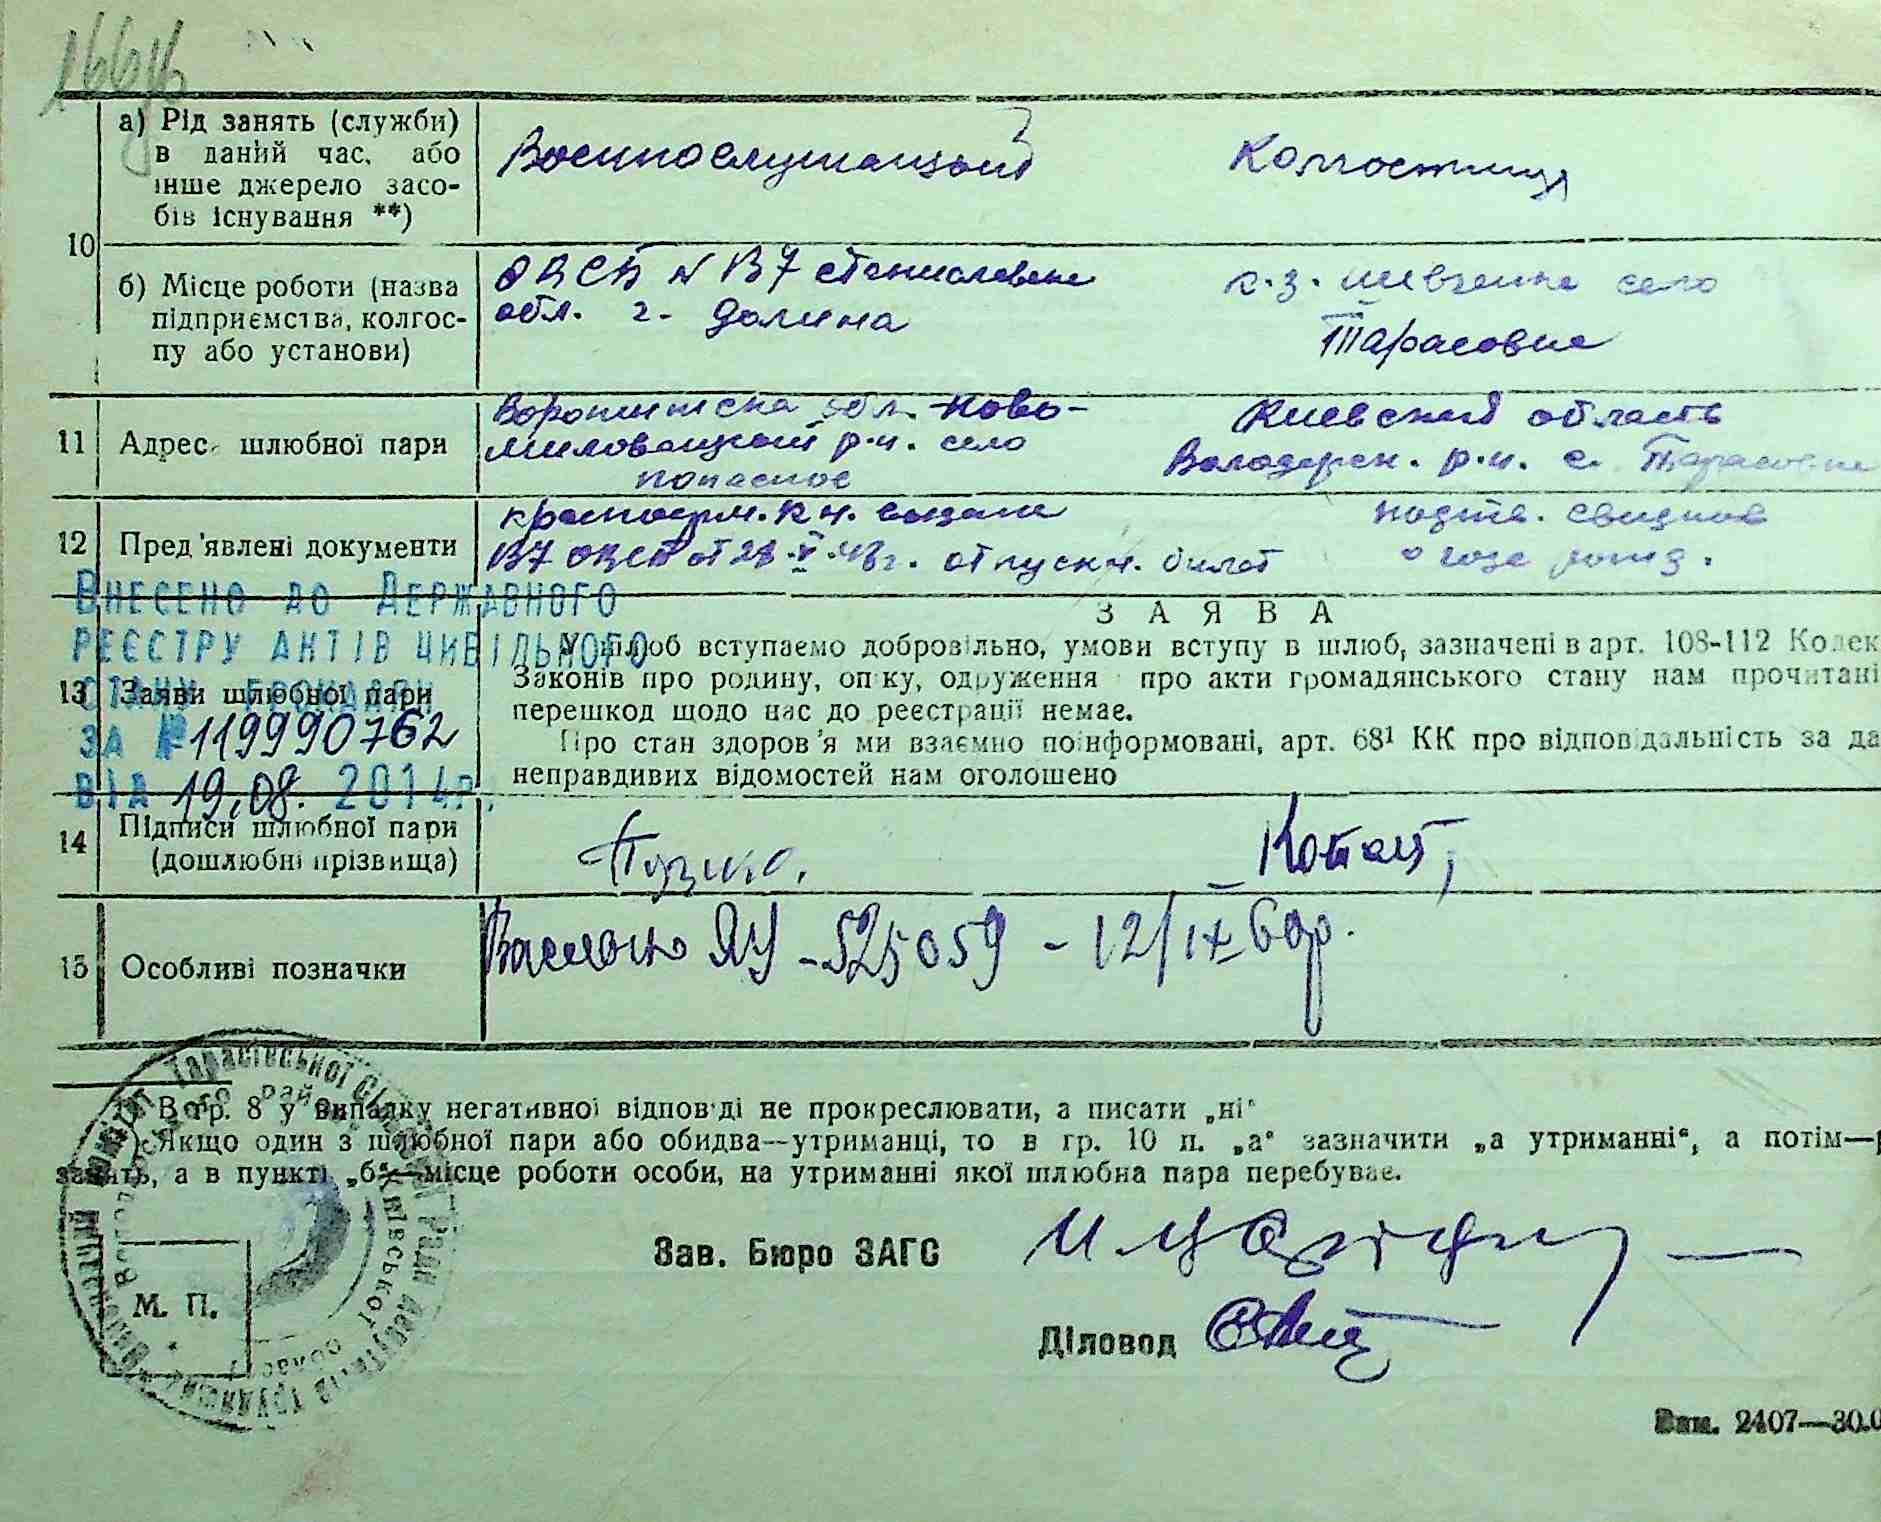 166
а) Рід занять (служби)
в даний час, або
інше джерело засо-
бів існування **)
Военнослужащый
Колгостница
10
б) Місце роботи (назва
підприємства, колгос-
пу або установи)
ОВСБ № 137 станиславске
обл. г. Долина
к.з. Шевченка село
Тарасовке
11 Адрес шлюбної пари
обл. Ново-
р-н. село
Киевский область
р-н. с. Тарасовке
12 Пред'явлені документи
красноарм. кн. выдана
137 ОВСБ от 28.V.48г. отпускн. билет
о годе рожд.
ВНЕСЕНО ДО ДЕРЖАВНОГО
РЕЄСТРУ АКТІВ ЦИВІЛЬНОГО
СТАНУ ГРОМАДЯН
ЗА № 119990762
ВІД 19.08. 2014р.
ЗАЯВА
13 Заяви шлюбної пари
У шлюб вступаємо добровільно, умови вступу в шлюб, зазначені в арт. 108-112 Кодек
Законів про родину, опіку, одруження про акти громадянського стану нам прочитані
перешкод щодо нас до реєстрації немає.
Про стан здоров'я ми взаємно поінформовані, арт. 68¹ КК про відповідальність за да
неправдивих відомостей нам оголошено
14 Підписи шлюбної пари
(дошлюбні прізвища)
15 Особливі позначки
ЯУ - 525059 - 12/IX 60р.
*) В гр. 8 у випадку негативної відповіді не прокреслювати, а писати „ні“
**) Якщо один з шлюбної пари або обидва—утриманці, то в гр. 10 п. „а“ зазначити „а утриманні“, а потім—р
занять, а в пункті „б“—місце роботи особи, на утриманні якої шлюбна пара перебуває.
Тарасівської Сільської Ради депутатів трудящих
Київської області
Зав. Бюро ЗАГС
М. П.
Діловод
Зам. 2407—30.0